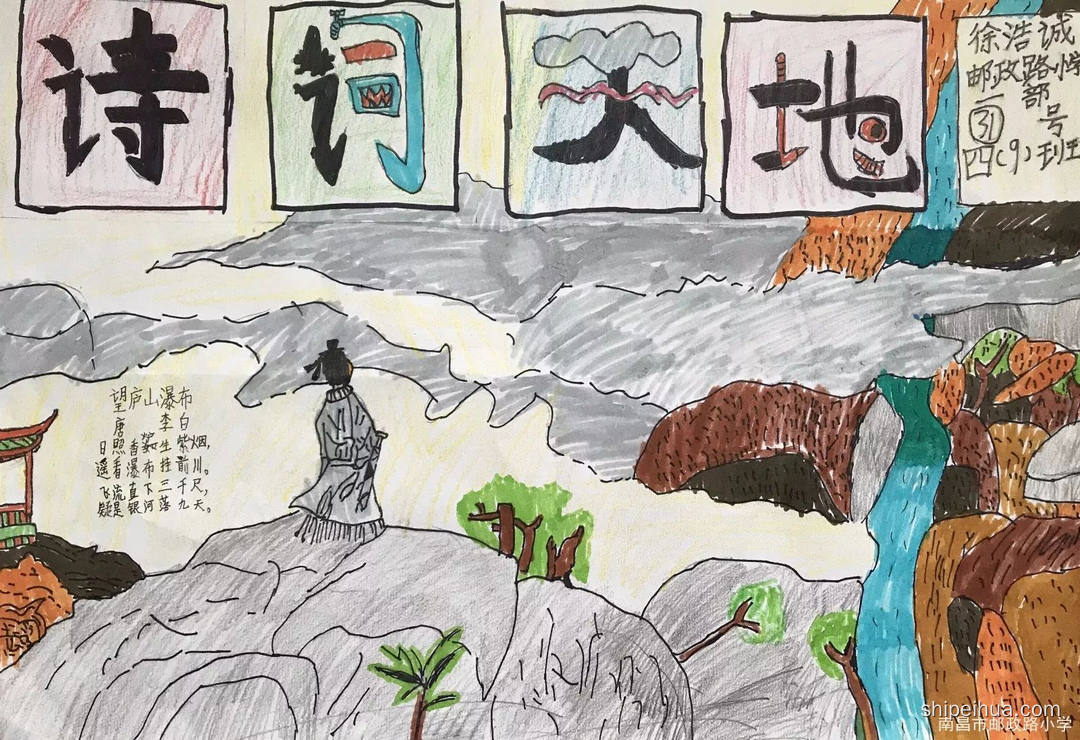 诗词天地
徐浩诚
邮政路小学
一部
31号
四(9)班
望庐山瀑布
唐 李白
日照香生紫烟,
遥看瀑布挂前川。
飞流直下三千尺,
疑是银河落九天。
shipeihua.com
南昌市邮政路小学